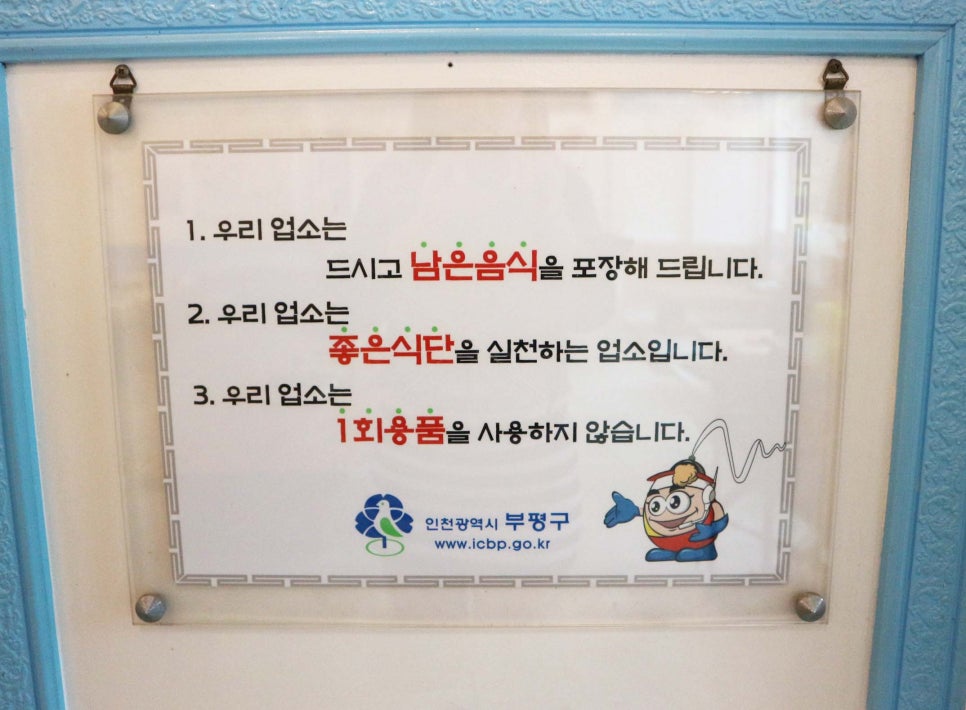 1. 우리 업소는
드시고 남은음식을 포장해 드립니다.
2. 우리 업소는
좋은식단을 실천하는 업소입니다.
3. 우리 업소는
1회용품을 사용하지 않습니다.
인천광역시 부평구
www.icbp.go.kr